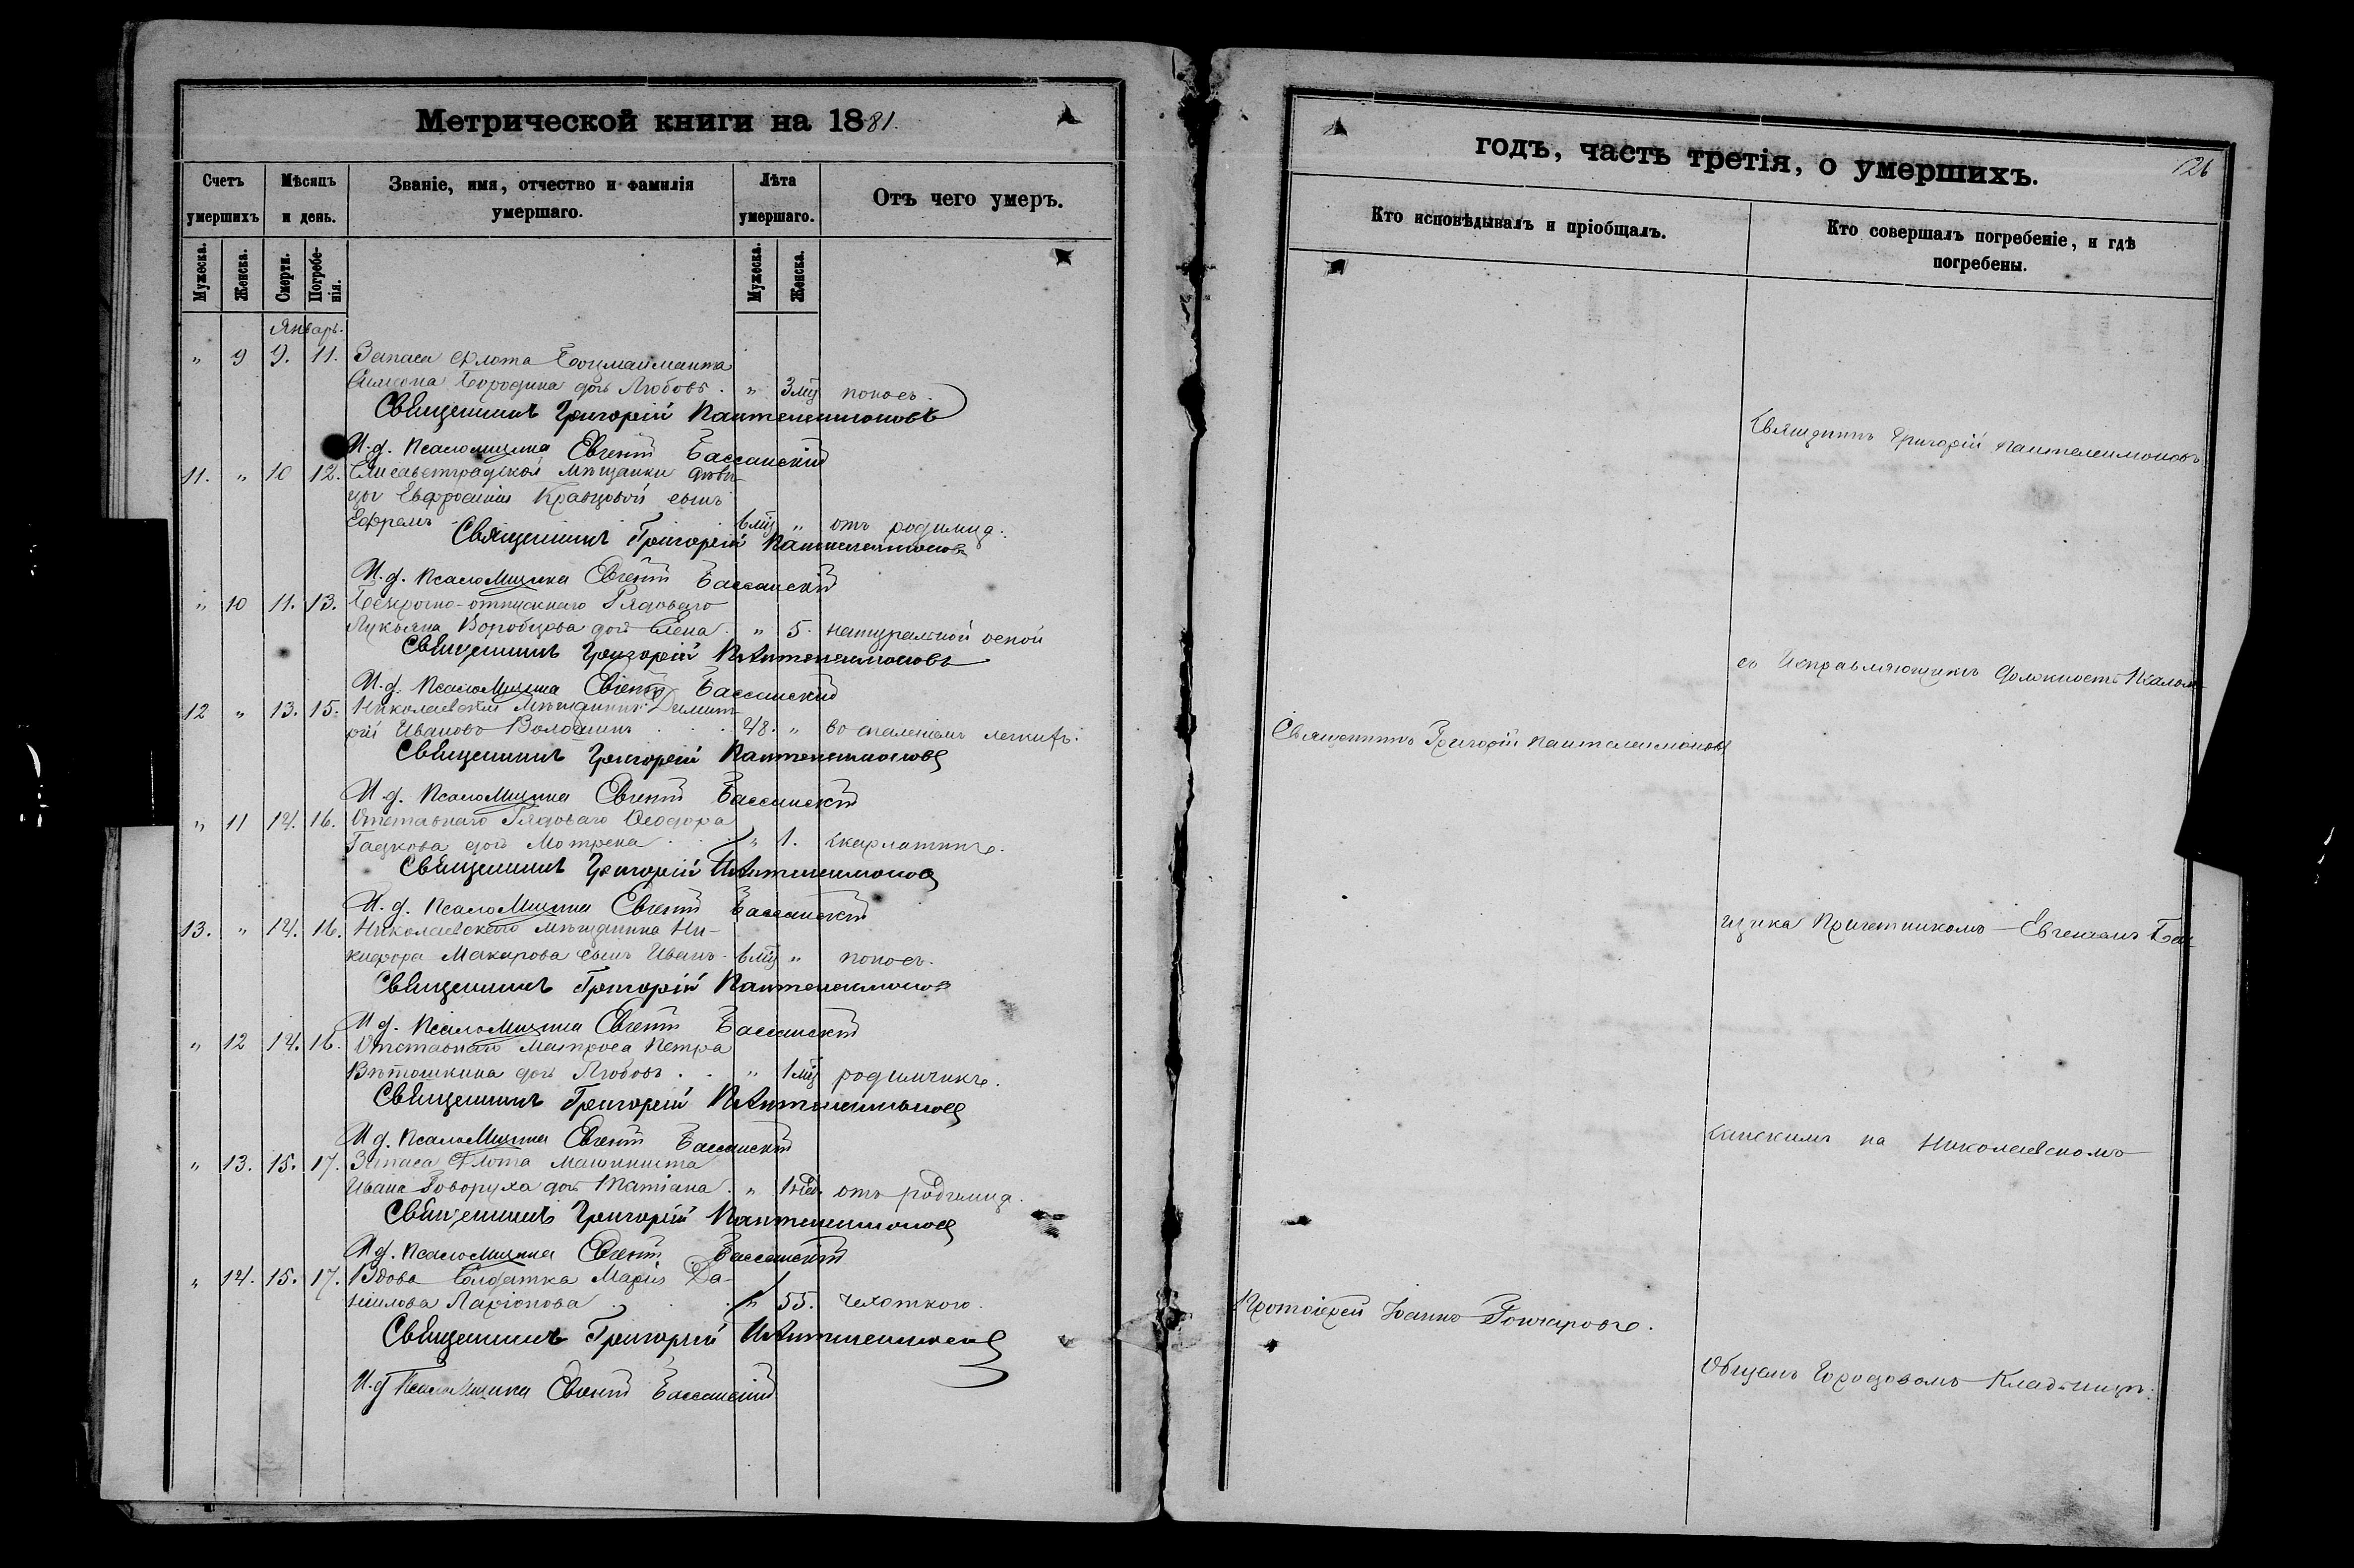 Метрической книги на 1881.
Счетъ умершихъ
Мѣсяцъ и день.
Званіе, имя, отчество и фамилія умершаго.
Лѣта умершаго.
Отъ чего умеръ.
Мужеска.
Женска.
Смерти.
Погребенія.
Мужеска.
Женска.
Январь.
" 9 9. 11. Запаса флота Боцманманта
Симеона Бородина дочь Любовь. " 3 мц поносъ.
Священникъ Григорій Пантелеимоновъ
И. д. Псаломщика Евгеній Бассанскій
11. " 10 12. Елисаветградской Мѣщанки дѣви-
цы Евфросиніи Кравцовой сынъ
Ефремъ 6 мц " отъ родимца.
Священникъ Григорій Пантелеимоновъ
И. д. Псаломщика Евгеній Бассанскій
" 10 11. 13. Безсрочно-отпускнаго Рядоваго
Лукьяна Воробцова дочь Елена. " 5. натуральной оспой
Священникъ Григорій Пантелеимоновъ
И. д. Псаломщика Евгеній Бассанскій
12 " 13. 15. Николаевскій Мѣщанинъ Димит-
рій Ивановъ Волошинъ 48. " воспаленіемъ легкихъ.
Священникъ Григорій Пантелеимоновъ
И. д. Псаломщика Евгеній Бассанскій
" 11 14. 16. Отставнаго Рядоваго Ѳеодора
дочь Мотрена " 1. скарлатины.
Священникъ Григорій Пантелеимоновъ
И. д. Псаломщика Евгеній Бассанскій
13. " 14. 16. Николаевскаго мѣщанина Ни-
кифора Макарова сынъ Иванъ. 6 мц " поносъ.
Священникъ Григорій Пантелеимоновъ
И. д. Псаломщика Евгеній Бассанскій
" 12 14. 16. Отставнаго Матроса Петра
Вѣтошкина дочь Любовь. " 1 мц родимчикъ.
Священникъ Григорій Пантелеимоновъ
И. д. Псаломщика Евгеній Бассанскій
" 13. 15. 17. Запаса Флота машиниста
Ивана Говоруха дочь Татіана. " 1 нед. отъ родимца.
Священникъ Григорій Пантелеимоновъ
И. д. Псаломщика Евгеній Бассанскій
" 14. 15. 17. Вдова Солдатка Марія Да-
нилова Ларіонова " 55. чехоткою.
Священникъ Григорій Пантелеимоновъ
И. д. Псаломщика Евгеній Бассанскій
годъ, часть третія, о умершихъ.
126
Кто исповѣдывалъ и пріобщалъ.
Кто совершалъ погребеніе, и гдѣ погребены.
Священникъ Григорій Пантелеимоновъ
съ Исправляющимъ должность Псалом-
Священникъ Григорій Пантелеимоновъ
щика Причетникомъ Евгеніемъ Бас-
санскимъ на Николаевскомъ
Протоіерей Іоаннъ Гончаровъ.
Общемъ Городовомъ Кладбищѣ.